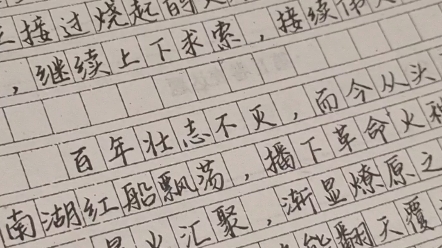 接过烧起的
，继续上下求索，接续
百年壮志不灭，而今从头
南湖红船飘荡，播下革命火
汇聚，渐显燎原之
翻天覆